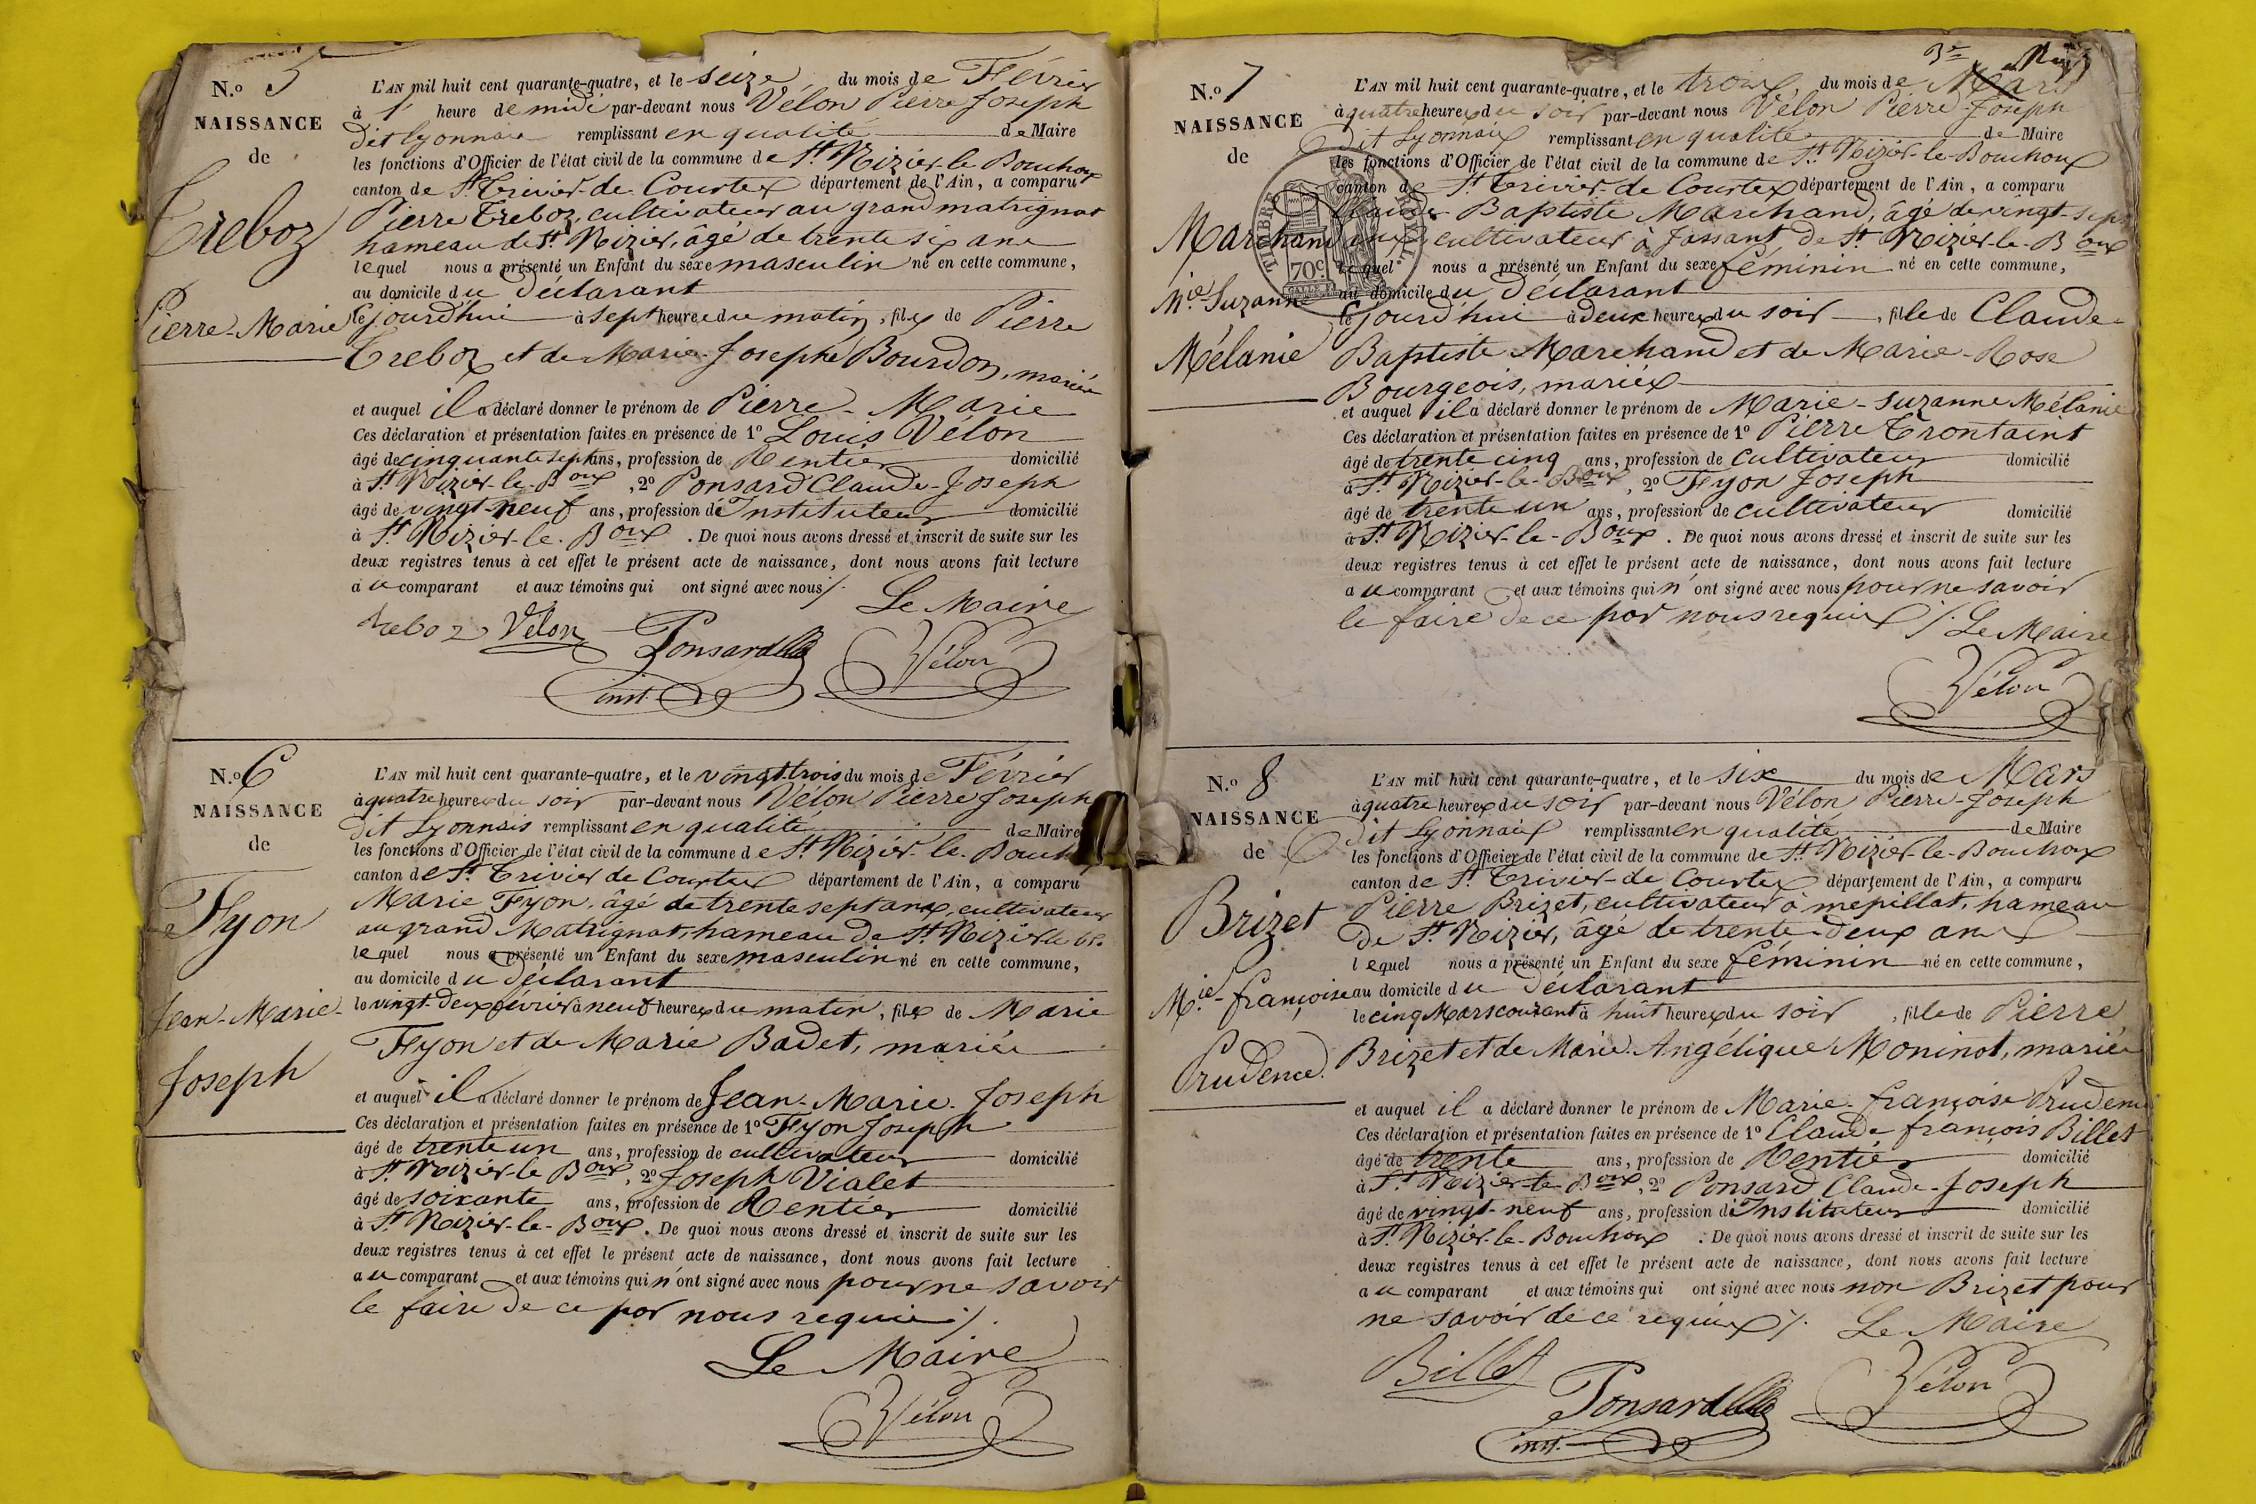 N.o 5
NAISSANCE
de
Treboz
Pierre-Marie
L'AN mil huit cent quarante-quatre, et le seize du mois de Février
à 1 heure de midi par-devant nous Vélon Pierre Joseph
dit Lyonnais remplissant en qualité de Maire
les fonctions d'Officier de l'état civil de la commune de St Nizier-le-Bouchoux
canton de St Trivier-de-Courtex département de l'Ain, a comparu
Pierre Treboz, cultivateur au grand matrignat
hameau de St Nizier, âgé de trente six ans
lequel nous a présenté un Enfant du sexe masculin né en cette commune,
au domicile du déclarant
le jourd'hui à sept heures du matin, fils de Pierre
Treboz et de Marie-Josephe Bourdon, mariés
et auquel il a déclaré donner le prénom de Pierre-Marie
Ces déclaration et présentation faites en présence de 1o Louis Vélon
âgé de cinquante sept ans, profession de Rentier domicilié
à St Nizier-le-Boux, 2o Ponsard Claude-Joseph
âgé de vingt-neuf ans, profession d'Instituteur domicilié
à St Nizier-le-Boux. De quoi nous avons dressé et inscrit de suite sur les
deux registres tenus à cet effet le présent acte de naissance, dont nous avons fait lecture
au comparant et aux témoins qui ont signé avec nous ./.
Le Maire
Treboz Vélon Ponsard Vélon
inst.
N.o 6
NAISSANCE
de
Fyon
Jean-Marie-
Joseph
L'AN mil huit cent quarante-quatre, et le vingt-trois du mois de Février
à quatre heures du soir par-devant nous Vélon Pierre Joseph
dit Lyonnais remplissant en qualité de Maire
les fonctions d'Officier de l'état civil de la commune de St Nizier-le-Bouch
canton de St Trivier de Courtex département de l'Ain, a comparu
Marie Fyon, âgé de trente sept ans, cultivateur
au grand Matrignat, hameau de St Nizier le Bx
lequel nous a présenté un Enfant du sexe masculin né en cette commune,
au domicile du déclarant
le vingt-deux février à neuf heures du matin, fils de Marie
Fyon et de Marie Badet, mariés
et auquel il a déclaré donner le prénom de Jean-Marie-Joseph
Ces déclaration et présentation faites en présence de 1o Fyon Joseph
âgé de trente un ans, profession de cultivateur domicilié
à St Nizier-le Boux, 2o Joseph Vialet
âgé de soixante ans, profession de Rentier domicilié
à St Nizier-le-Boux. De quoi nous avons dressé et inscrit de suite sur les
deux registres tenus à cet effet le présent acte de naissance, dont nous avons fait lecture
au comparant et aux témoins qui n'ont signé avec nous pour ne savoir
le faire de ce par nous requis ./.
Le Maire
Vélon
N.o 7
NAISSANCE
de
Marchand
Mie-Suzanne
Mélanie
TIMBRE ROYAL
70c
L'AN mil huit cent quarante-quatre, et le trois, du mois de Mars
à quatre heures du soir par-devant nous Vélon Pierre-Joseph
dit Lyonnaix remplissant en qualité de Maire
les fonctions d'Officier de l'état civil de la commune de St Nizier-le-Bouchoux
canton de St Trivier-de Courtex département de l'Ain, a comparu
Claude Baptiste Marchand, âgé de vingt-sept
ans, cultivateur à Jassant, de St Nizier-le-Boux
lequel nous a présenté un Enfant du sexe féminin né en cette commune,
au domicile du déclarant
le jourd'hui à deux heures du soir, fille de Claude-
Baptiste Marchand et de Marie-Rose
Bourgeois, mariés
et auquel il a déclaré donner le prénom de Marie-Suzanne Mélanie
Ces déclaration et présentation faites en présence de 1o Pierre Trontaint
âgé de trente cinq ans, profession de cultivateur domicilié
à St Nizier-le-Boux, 2o Fyon Joseph
âgé de trente un ans, profession de cultivateur domicilié
à St Nizier-le-Boux. De quoi nous avons dressé et inscrit de suite sur les
deux registres tenus à cet effet le présent acte de naissance, dont nous avons fait lecture
au comparant et aux témoins qui n'ont signé avec nous pour ne savoir
le faire de ce par nous requis ./. Le Maire
Vélon
N.o 8
NAISSANCE
de
Brizet
Mie-françoise
Prudence
L'AN mil huit cent quarante-quatre, et le six du mois de Mars
à quatre heures du soir par-devant nous Vélon Pierre-Joseph
dit Lyonnaix remplissant en qualité de Maire
les fonctions d'Officier de l'état civil de la commune de St Nizier-le-Bouchoux
canton de St Trivier-de Courtex département de l'Ain, a comparu
Pierre Brizet, cultivateur à mépillat, hameau
de St Nizier, âgé de trente-deux ans
lequel nous a présenté un Enfant du sexe féminin né en cette commune,
au domicile du déclarant
le cinq Mars courant à huit heures du soir, fille de Pierre
Brizet et de Marie-Angélique Moninot, mariés
et auquel il a déclaré donner le prénom de Marie-françoise Prudence
Ces déclaration et présentation faites en présence de 1o Claude françois Billet
âgé de trente ans, profession de Rentier domicilié
à St Nizier-le Boux, 2o Ponsard Claude-Joseph
âgé de vingt-neuf ans, profession d'Instituteur domicilié
à St Nizier-le-Bouchoux. De quoi nous avons dressé et inscrit de suite sur les
deux registres tenus à cet effet le présent acte de naissance, dont nous avons fait lecture
au comparant et aux témoins qui ont signé avec nous non Brizet pour
ne savoir de ce requis ./. Le Maire
Billet Ponsard Vélon
inst.